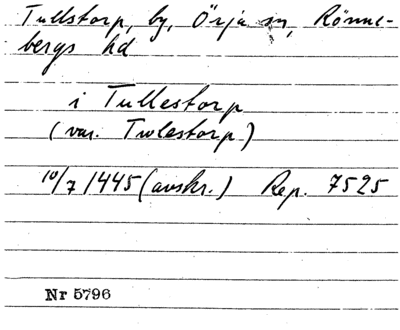 Tullstorp, by, Örja sn, Rönne-
bergs hd
i Tullestorp
(var. Twlestorp)
10/7 1445 (avskr.) Rep. 7525
Nr 5796